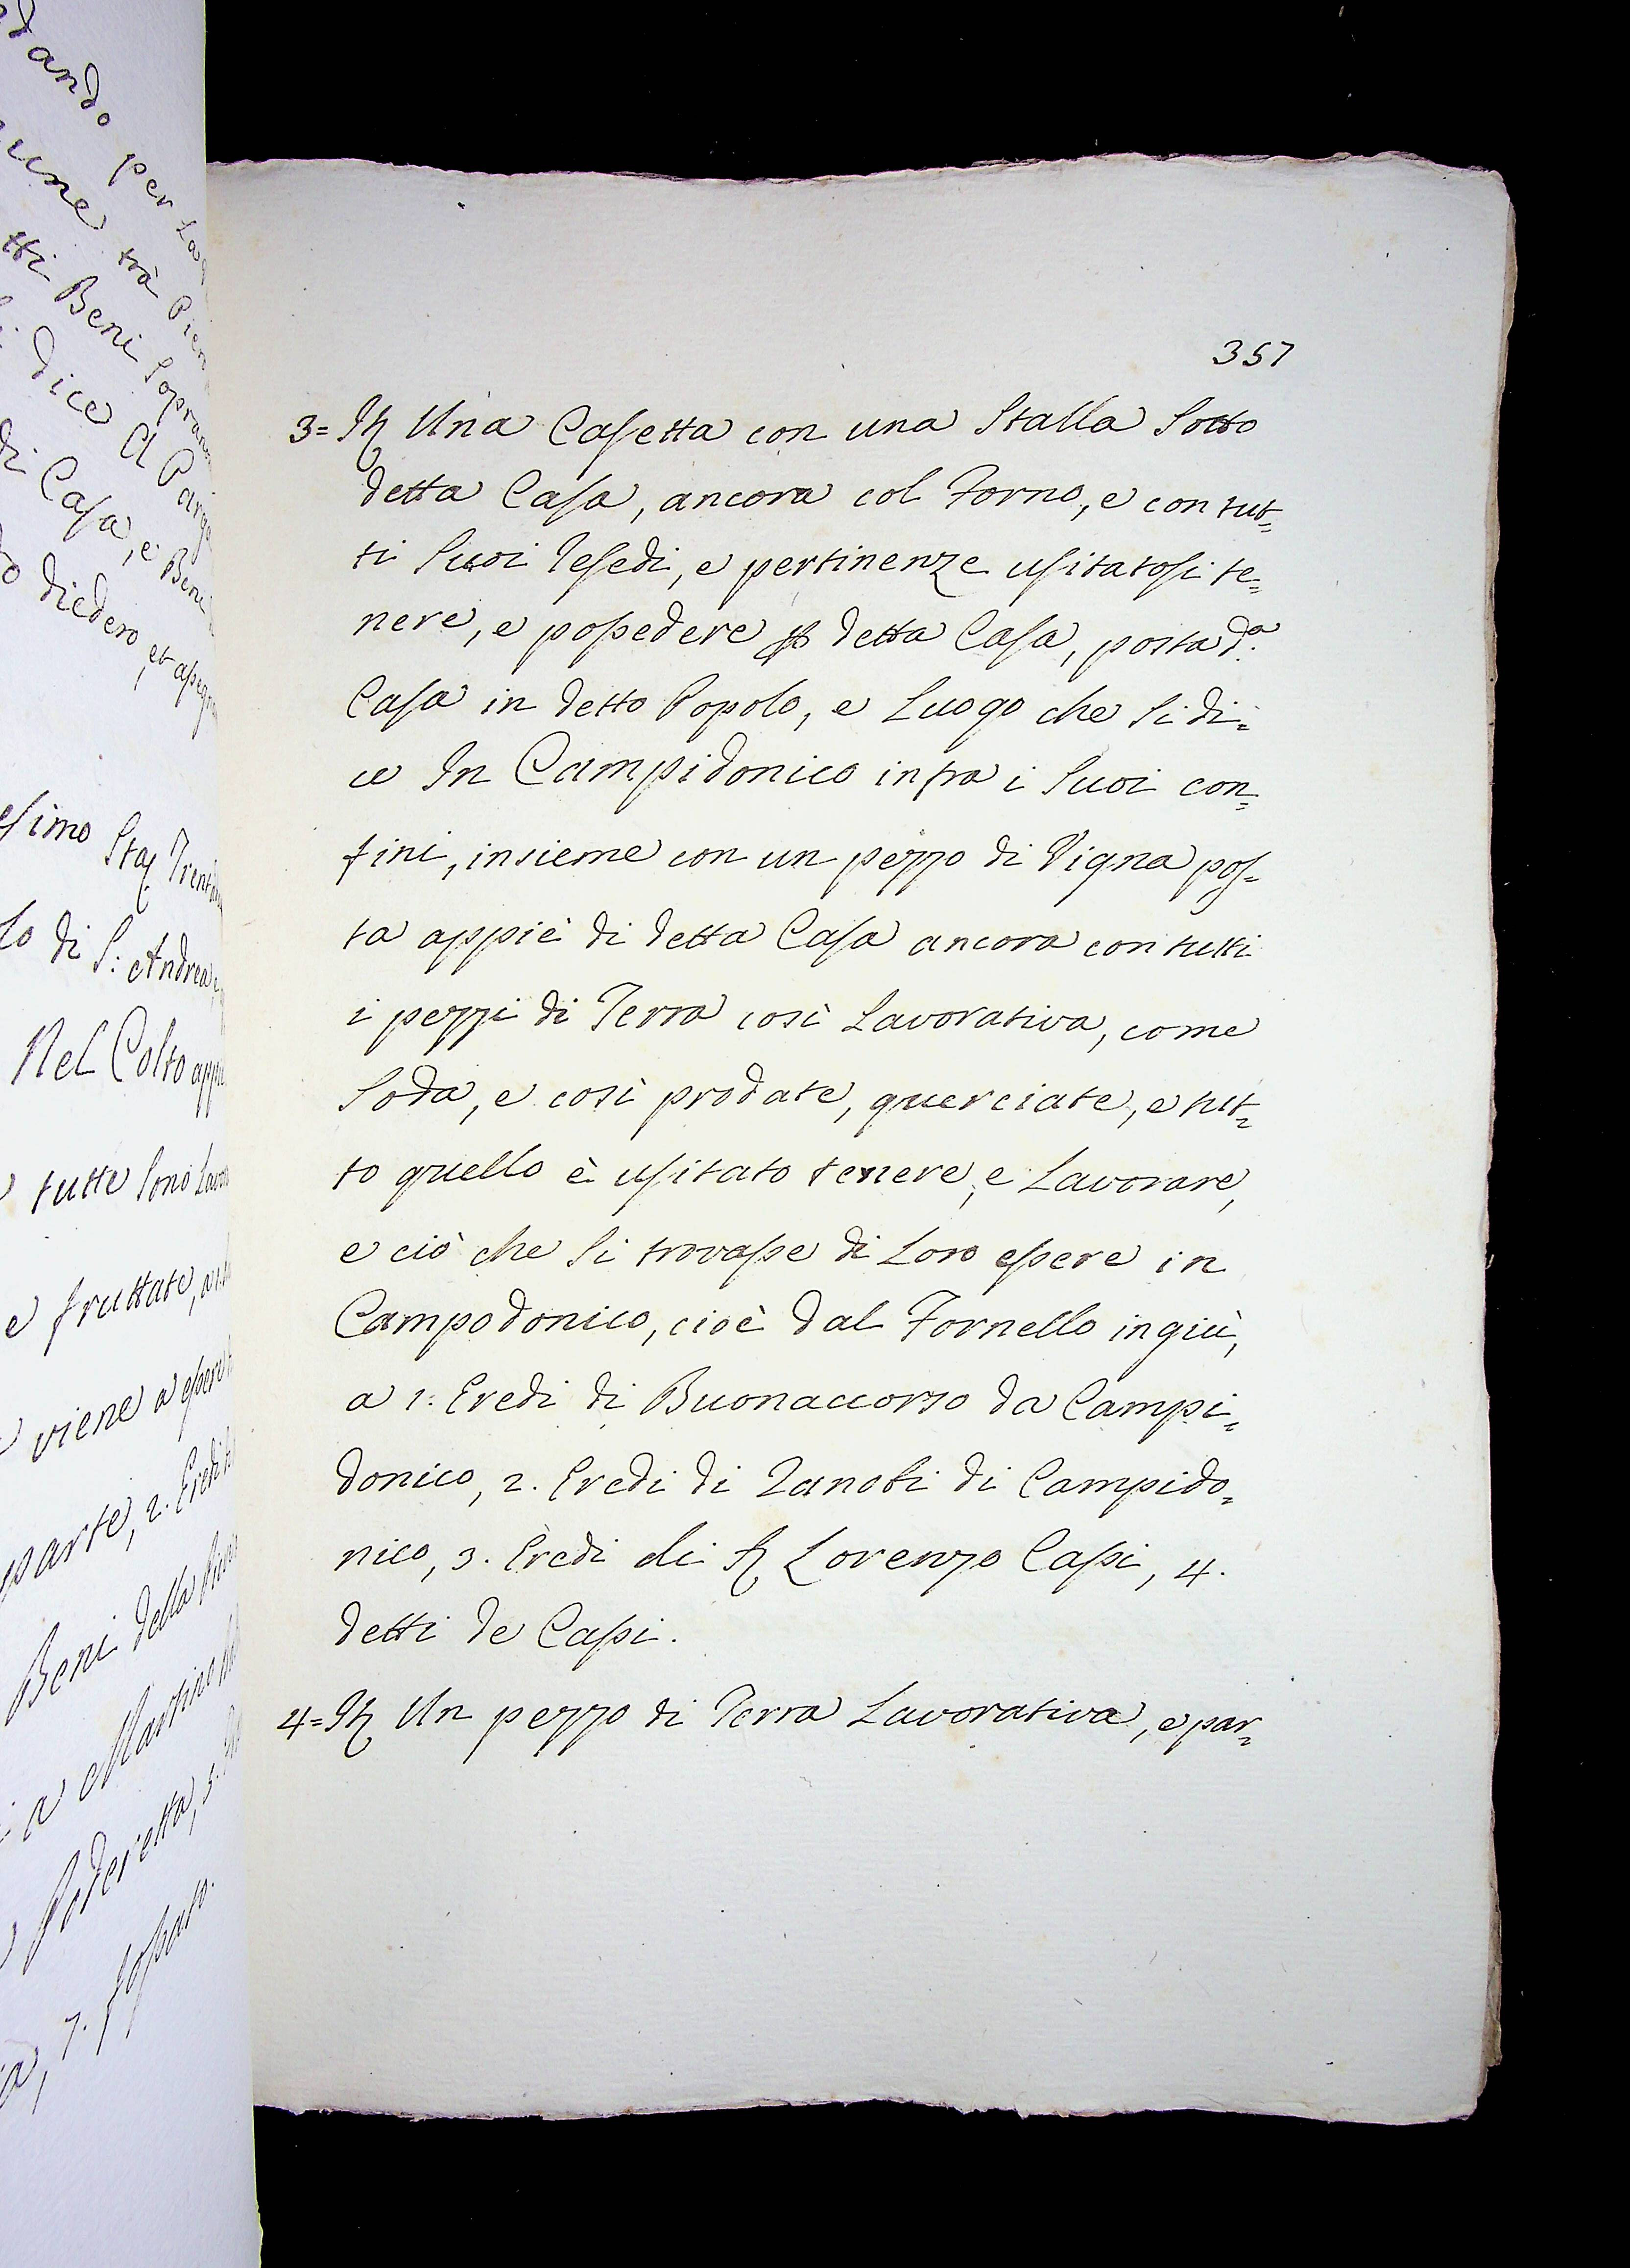 dando per la
une trà Pier
tti Beni Sopran
dice A Parga
di Casa, e Beni
o diedero, et assegn
esimo Sta: Trenta
lo di S: Andrea
Nel Colto app
tutte Sono Lavo
e fruttate,
viene a essere
parte, 2. Eredi
Beni della Piev
a Martino
Poderetta, 5.
a, 7. fossato.
357
3= It Una Casetta con una Stalla Sotto
detta Casa, ancora col Forno, e con tut=
ti Suoi Resedi, e pertinenze usitatosi te=
nere, e possedere p detta Casa, posta d.a
Casa in detto Popolo, e Luogo che Si di=
ce In Campidonico infra i Suoi con=
fini, insieme con un pezzo di Vigna pos=
ta appiè di detta Casa ancora con tutti
i pezzi di Terra così Lavorativa, come
Soda, e così prodate, querciate, e tut=
to quello è usitato tenere, e Lavorare,
e ciò che Si trovasse di Loro essere in
Campodonico, cioè dal Fornello ingiù,
a 1: Eredi di Buonaccorso da Campi=
donico, 2. Eredi di Zanobi di Campido=
nico, 3. Eredi di Lorenzo Cassi, 4.
detti de Cassi.
4= It Un pezzo di Terra Lavorativa, e par=